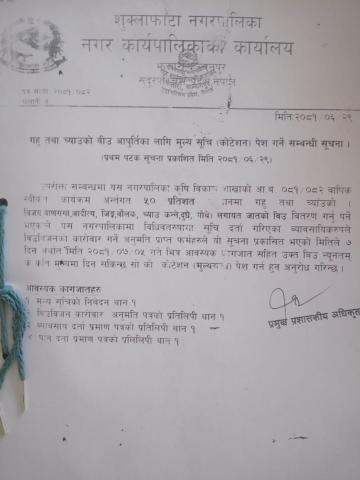 शुक्लाफाँटा नगरपालिका
नगर कार्यपालिकाको कार्यालय
सुदूरपश्चिम प्रदेश नेपाल
पत्र संख्या २०८१/०८२
मिति:२०८१/०६/२९
गहु तथा च्याउको बीउ आपुर्तिका लागि मुल्य सुचि (कोटेशन) पेश गर्ने सम्बन्धी सूचना।
(प्रथम पटक सूचना प्रकाशित मिति २०८१/०६/२९)
उपरोक्त सम्बन्धमा यस नगरपालिका कृषि विकास शाखाको आ.ब. ०८१/०८२ वार्षिक
स्वीकृत कार्यक्रम अन्तर्गत ५० प्रतिशत गहु तथा च्याउको (
विजय, बाणगंगा, आदित्य, च्याउ कन्ने, दुधे, गोबे) लगायत जातको बिउ वितरण गर्नु पर्ने
भएकोले यस नगरपालिकामा विधिवतरुपमा सुचि दर्ता गरिएका ब्यावसायिकरुपले
बिउबिजनको कारोवार गर्ने अनुमति प्राप्त फर्महरुले यो सूचना प्रकाशित भएको मितिले ७
दिन अर्थात मिति २०८१/०७/०५ गते भित्र आवश्यक कागजात सहित उक्त बिउ न्यूनतम
के कति मुल्यमा दिन सकिन्छ सो को कोटेशन पेश गर्न हुन अनुरोध गरिन्छ।
आवश्यक कागजातहरु
१ मुल्य सुचिको निवेदन थान १
बिउबिजन कारोवार अनुमति पत्रको प्रतिलिपी थान १
व्यावसाय दर्ता प्रमाण पत्रको प्रतिलिपी थान १
४ पान दर्ता प्रमाण पत्रको प्रतिलिपी थान १
प्रमुख प्रशासकीय अधिकृत